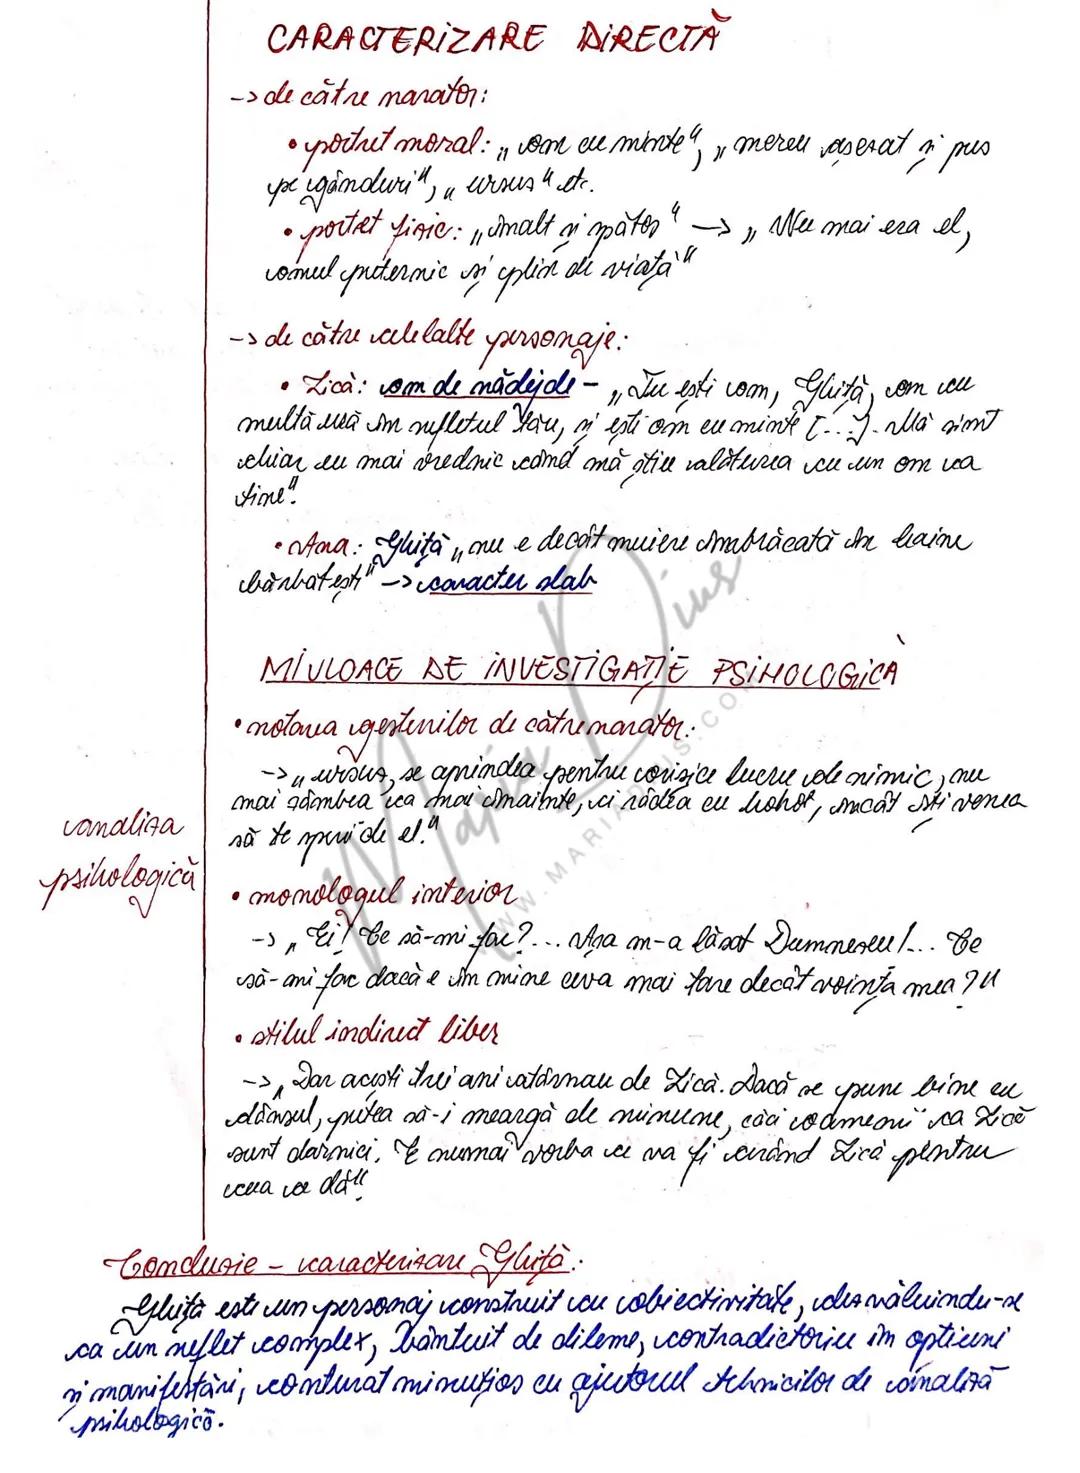 CARACTERIZARE DIRECTĂ
-> de către narator:
• portret moral: „om cu minte", „mereu așezat și pus
pe gânduri", „ursus" etc.
• portret fizic: „înalt și spătos" -> „Nu mai era el,
omul puternic și plin de viață"
-> de către celelalte personaje:
• Lică: om de nădejde - „Tu ești om, Ghiță, om cu
multă ură în sufletul tău, și ești om cu minte [...]. Mă simt
chiar eu mai vrednic când mă știu alăturea cu un om ca
tine".
• Ana: Ghiță „nu e decât muiere îmbrăcată în haine
bărbătești" -> caracter slab
MIJLOACE DE INVESTIGAȚIE PSIHOLOGICĂ
• notarea gesturilor de către narator:
-> „ursuz, se aprindea pentru orișice lucru de nimic, nu
mai zâmbea ca mai înainte, ci râdea cu hohot, încât îți venea
să te sperii de el."
analiza
psihologică
• monologul interior
-> „Ei! Ce să-mi fac?... Așa m-a lăsat Dumnezeu!... Ce
să-mi fac dacă e în mine ceva mai tare decât voința mea?"
• stilul indirect liber
-> „Dar acești trei ani atârnau de Lică. Dacă se pune bine cu
dânsul, putea să-i meargă de minune, căci oamenii ca Lică
sunt darnici. E numai vorba ce va fi având Lică pentru
ceea ce dă".
Concluzie - caracterizare Ghiță:
Ghiță este un personaj construit cu obiectivitate, dezvăluindu-se
ca un suflet complex, bântuit de dileme, contradictoriu în opțiuni
și manifestări, conturat minuțios cu ajutorul tehnicilor de analiză
psihologică.
Maria Dius
WWW.MARIADIUS.COM